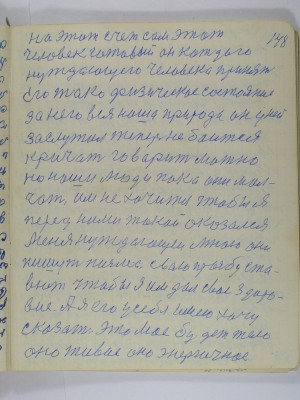 148
на этот счет сам этот
человек готовый он каждого
нуждающего человека принять
его тако физическое состояние
за него вся наша природа он у ней
заслужил теперь не боится
кричат говорит можно
но наши люди пока они мол-
чат, им не хочится чтобы я
перед ними такой оказался
Меня нуждающии мною они
пишут письма сваю прозьбу ста-
вют чтобы я им дал свое здоро-
вие. А я его у себя имею хочу
сказат. Это мое бу дет тело
оно живие оно энергичное